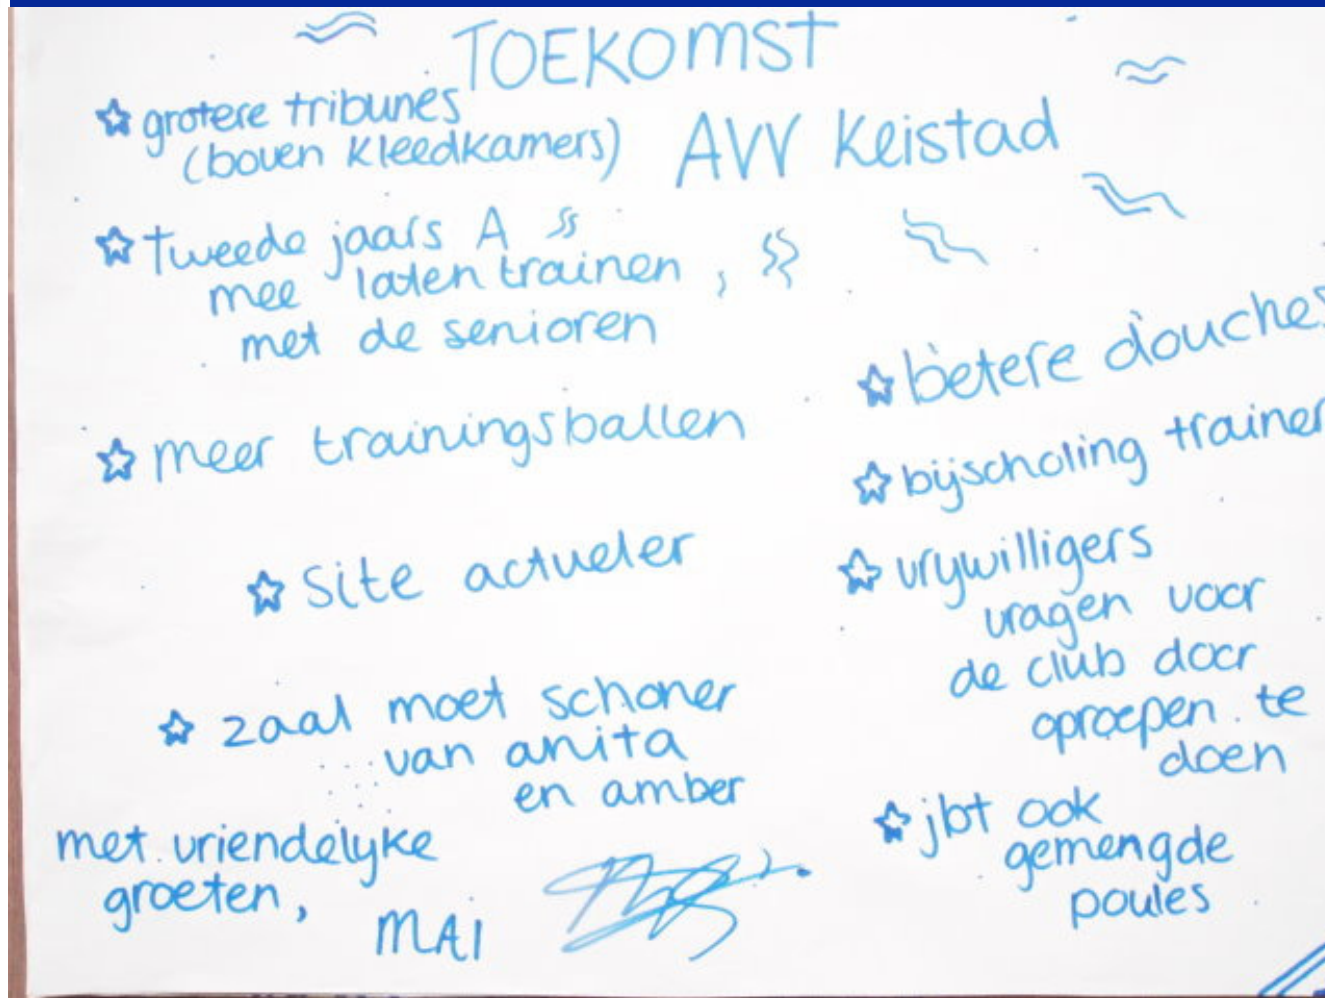 TOEKOMST
AVV Keistad
grotere tribunes
(boven kleedkamers)
tweede jaars A
mee laten trainen,
met de senioren
meer trainingsballen
site actueler
zaal moet schoner
van anita
en amber
met vriendelyke
groeten,
MA1
betere douches
bijscholing trainer
vrywilligers
vragen voor
de club door
oproepen te
doen
jbt ook
gemengde
poules